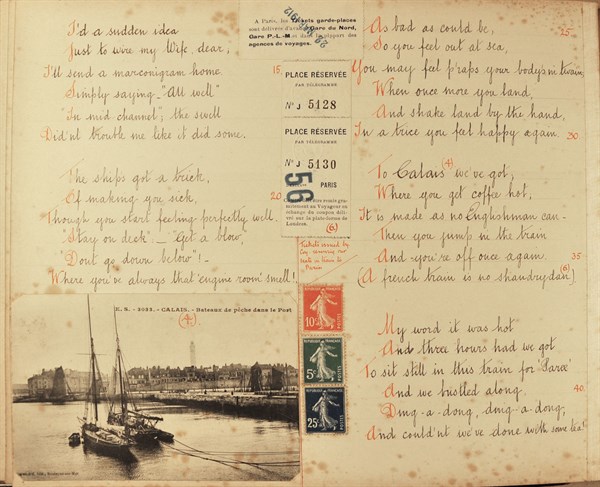 I'd a sudden idea
Just to wire my Wife, dear,
I'll send a marconigram home.
Simply saying - "All well"
"In mid channel"; the swell
Did'nt trouble me like it did some.
15.
The ships got a trick,
Of making you sick,
20.
Though you start feeling perfectly well.
"Stay on deck" - "Get a blow,
Dont go down below"! -
Where you've always that "engine room" smell!,
E. S. - 3033. - CALAIS. - Bateaux de pêche dans le Port
(4.)
A Paris, les tickets garde-places
sont délivrés d'avance Gare du Nord,
Gare P.-L.-M. et dans la plupart des
agences de voyages.
1912
PLACE RÉSERVÉE
PAR TÉLÉGRAMME
No J 5128
PLACE RÉSERVÉE
PAR TÉLÉGRAMME
No J 5130
PARIS
56
être remis gra-
tuitement au Voyageur en
échange du coupon déli-
vré sur la plate-forme de
Londres.
(6)
Tickets issued by
Coy. reserving our
seats in train to
Paris
RÉPUBLIQUE FRANÇAISE
10c
POSTES
RÉPUBLIQUE FRANÇAISE
5c
POSTES
RÉPUBLIQUE FRANÇAISE
25c
POSTES
As bad as could be,
25.
So you feel out at sea,
You may feel p'raps your body's in twain,
When once more you land,
And shake land by the hand,
In a trice you feel happy again.
30.
To Calais (4) we've got,
Where you get coffee hot,
It is made as no Englishman can -
Then you jump in the train
And you're off once again.
35.
(A french train is no shandrydan) (6)
My word it was hot
And three hours had we got
To sit still in this train for 'Paree'
And we bustled along.
40.
Ding-a-dong, ding-a-dong,
And could'nt we've done with some tea!